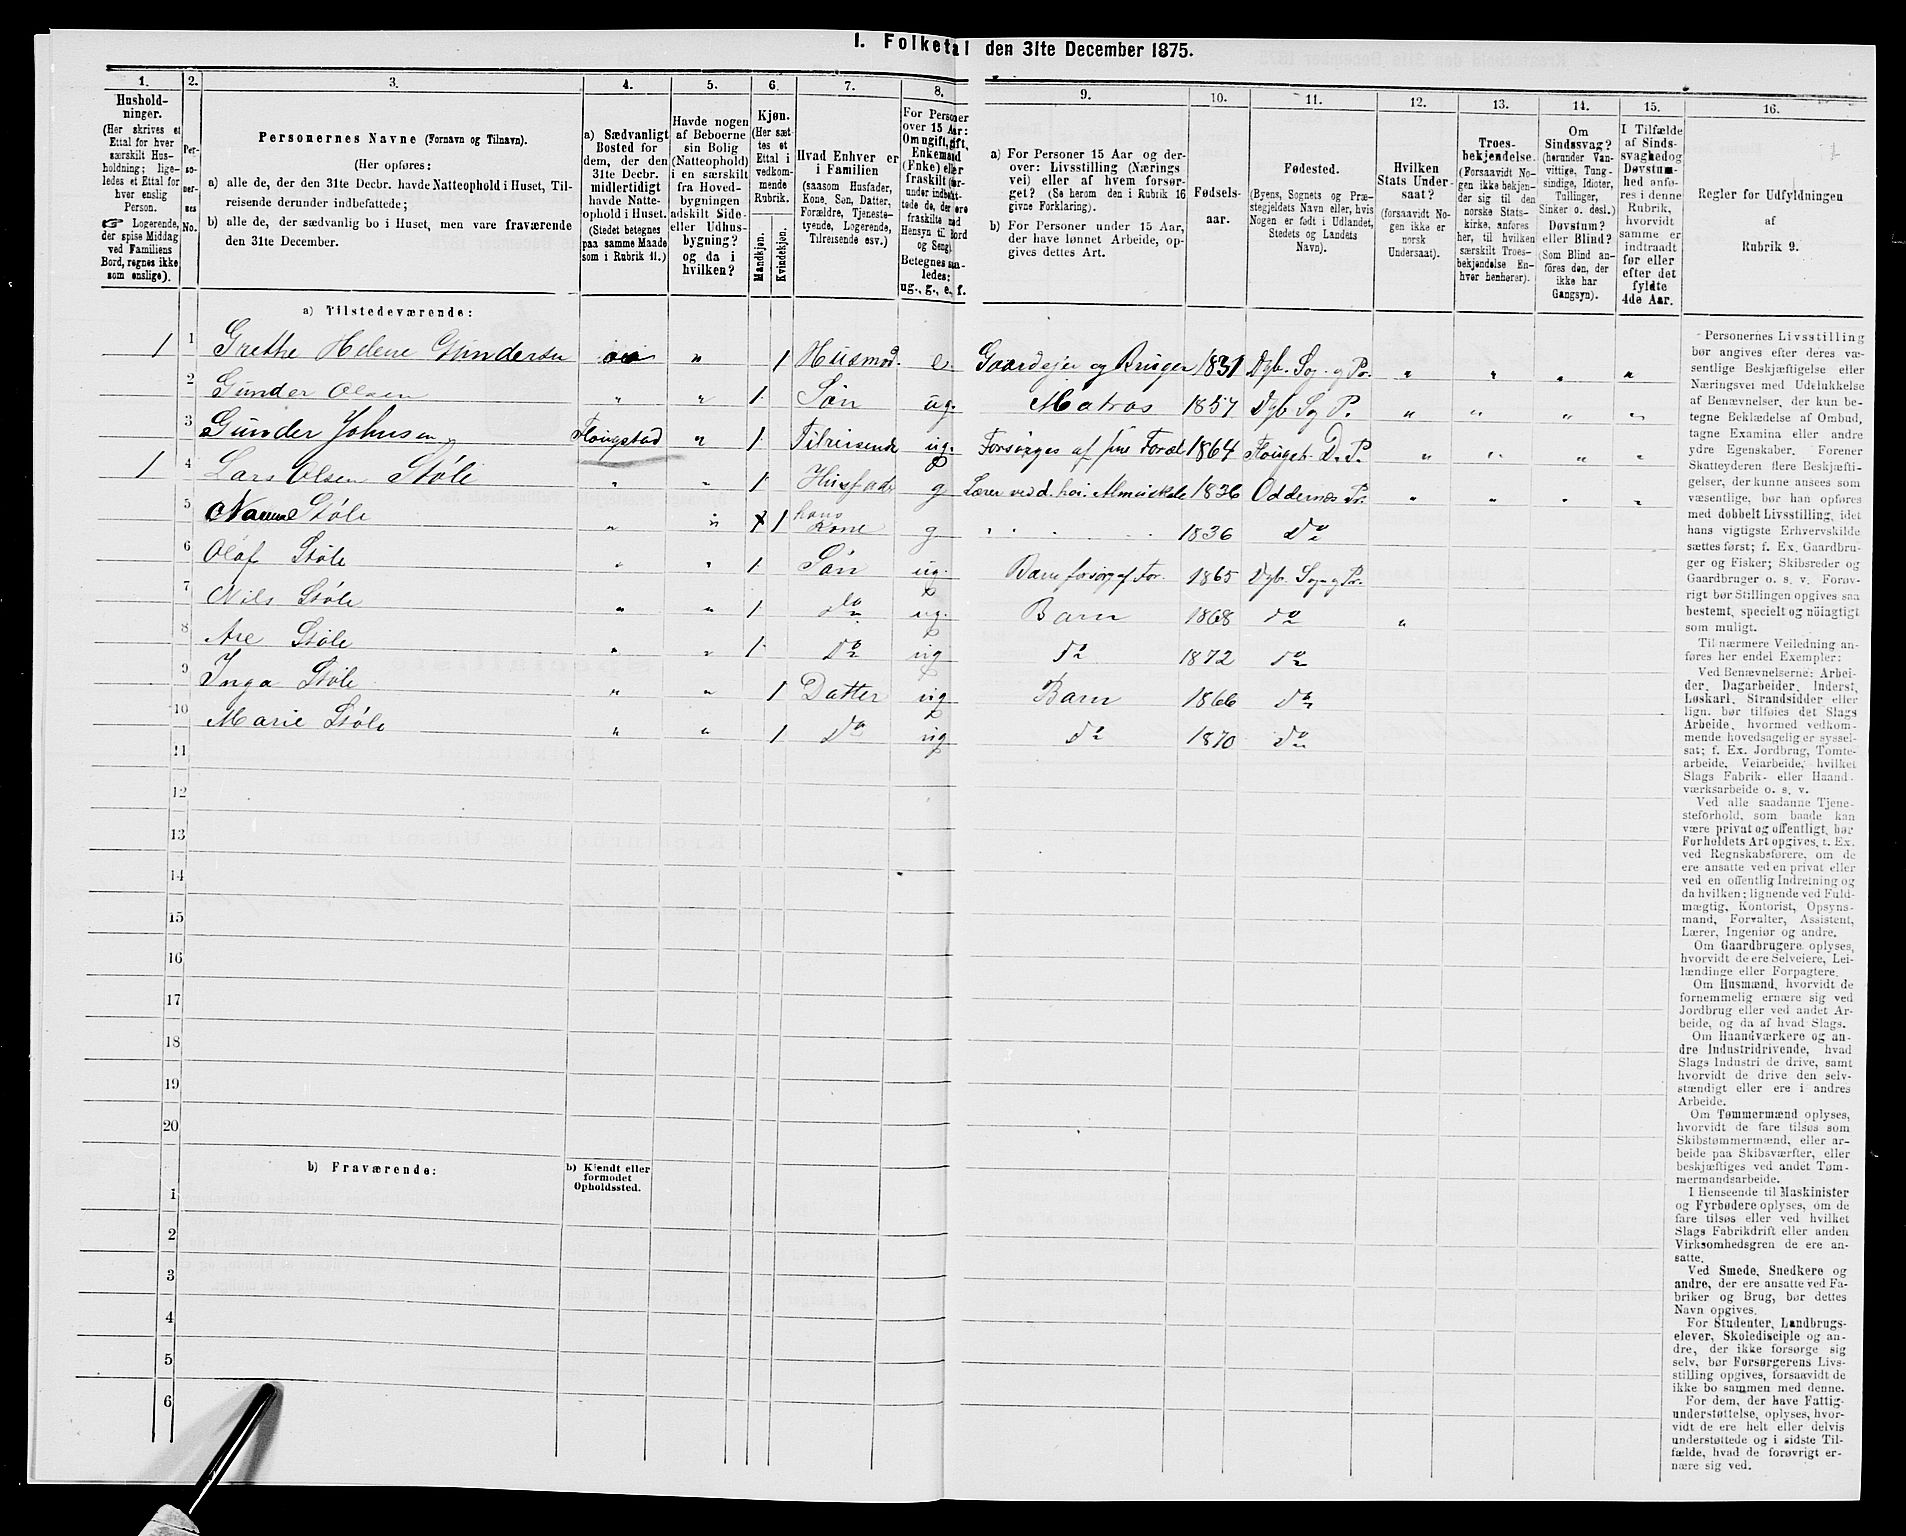 I. Folketal den 31te December 1875.
1.
2.
3.
4.
5.
6.
7.
8.
9.
10.
11.
12.
13.
14.
15.
16.
Hushold-
ninger.
(Her skrives et
Ettal for hver
særskilt Hus-
holdning; lige-
ledes et Ettal for
hver enslig
Person.
☞ Logerende,
der spise Middag
ved Familiens
Bord, regnes ikke
som enslige).
Per-
so-
ner-
nes
No.
Personernes Navne (Fornavn og Tilnavn).
(Her opføres:
a) alle de, der den 31te Decbr. havde Natteophold i Huset, Til-
reisende derunder indbefattede;
b) alle de, der sædvanlig bo i Huset, men vare fraværende
den 31te December.
a) Sædvanligt
Bosted for
dem, der den
31te Decbr.
midlertidigt
havde Natte-
ophold i Huset.
(Stedet betegnes
paa samme Maade
som i Rubrik 11.)
Havde nogen
af Beboerne
sin Bolig
(Natteophold)
i en særskilt
fra Hoved-
bygningen
adskilt Side-
eller Udhus-
bygning?
og da i
hvilken?
Kjøn.
(Her sæt-
tes et
Ettal i
vedkom-
mende
Rubrik.
Mandkjøn.
Kvindekjøn.
Hvad Enhver er
i Familien
(saasom Husfader,
Kone, Søn, Datter,
Forældre, Tjeneste-
tyende, Logerende,
Tilreisende osv.)
For Personer
over 15 Aar:
Om ugift, gift,
Enkemand
(Enke) eller
fraskilt
Betegnes saa-
ledes:
ug., g., e., f.
a) For Personer 15 Aar og der-
over: Livsstilling (Nærings
vei) eller af hvem forsør-
get? (Se herom den i Rubrik 16
givne Forklaring).
b) For Personer under 15 Aar,
der have lønnet Arbeide, op-
gives dettes Art.
Fødsels-
aar.
Fødested.
(Byens, Sognets og Præ-
stegjeldets Navn eller, hvis
Nogen er født i Udlandet,
Stedets og Landets
Navn).
Hvilken
Stats Under-
saat?
(forsaavidt No-
gen ikke er
norsk
Undersaat).
Troes-
bekjendelse.
(Forsaavidt No-
gen ikke bekjen-
der sig til den
norske Stats-
kirke, anføres
her, til hvilken
særskilt Troes-
bekjendelse En-
hver henhører).
Om
Sindssvag?
(herunder Van-
vittige, Tung-
sindige, Idioter,
Tullinger,
Sinker o. desl.)
Døvstum?
eller Blind?
(Som Blind an-
føres den, der
ikke har
Gangsyn).
I Tilfælde
af Sinds-
svaghed og
Døvstum-
hed anfø-
res i denne
Rubrik,
hvorvidt
samme er
indtraadt
før eller
efter det
fyldte
4de Aar.
Regler for Udfyldningen
af
Rubrik 9.
a) Tilstedeværende:
1 1 Grethe Helene Gundersen " 1 Husmod. e. Gaardejer og Bruger 1831 Dyb. Sog. og Pr. " " " "
2 Gunder Olsen " " 1 Søn ug. Matros 1857 Dyb Sog P. " " " "
3 Gunder Johnsen Flougstad " 1 Tilreisende ug. Forsørges af sine Foræl 1864 D. P. " " " "
1 4 Lars Olsen Støle " " 1 Husfad. g Lærer ved d. høi. Almuskole 1836 Oddernæs Pr. " " " "
5 Støle " " 1 hans Kone g 1836 Do
6 Olaf Støle " " 1 Søn ug. Barn forsørg af For. 1865 Dyb. Sog og Pr.
7 Nils Støle " " 1 do ug. Barn 1868 do "
8 Are Støle " " 1 do ug do 1872 do
9 Inga Støle " " 1 Datter ug Barn 1866 do
10 Marie Støle " " 1 Do ug do 1870 do
11
12
13
14
15
16
17
18
19
20
b) Fraværende:
b) Kjendt eller
formodet
Opholdssted.
1
2
3
4
5
6
Personernes Livsstilling
bør angives efter deres væ-
sentlige Beskjæftigelse eller
Næringsvei med Udelukkelse
af Benævnelser, der kun be-
tegne Beklædelse af Ombud,
tagne Examina eller andre
ydre Egenskaber. Forener
Skatteyderen flere Beskjæfti-
gelser, der kunne ansees som
væsentlige, bør han opføres
med dobbelt Livsstilling, idet
hans vigtigste Erhvervskilde
sættes først; f. Ex. Gaardbru-
ger og Fisker; Skibsreder og
Gaardbruger o. s. v. Forøv-
rigt bør Stillingen opgives saa
bestemt, specielt og nöiagtigt
som muligt.
Til nærmere Veiledning an-
føres her endel Exempler:
Ved Benævnelserne: Arbei-
der, Dagarbeider, Inderst,
Løskarl, Strandsidder eller
lign. bør tilføies det Slags
Arbeide, hvormed vedkom-
mende hovedsagelig er syssel-
sat; f. Ex. Jordbrug, Tomte-
arbeide, Veiarbeide, hvilket
Slags Fabrik- eller Haand-
værksarbeide o. s. v.
Ved alle saadanne Tjene-
steforhold, som baade kan
være privat og offentligt, bør
Forholdets Art opgives, t. Ex.
ved Regnskabsførere, om de
ere ansatte ved en privat eller
ved en offentlig Indretning og
da hvilken; lignende ved Fuld-
mægtig, Kontorist, Opsyns-
mand, Forvalter, Assistent,
Lærer, Ingeniør og andre.
Om Gaardbrugere oplyses,
hvorvidt de ere Selveiere, Lei-
lændinge eller Forpagtere.
Om Husmænd, hvorvidt de
fornemmelig ernære sig ved
Jordbrug eller ved andet Ar-
beide, og da af hvad Slags.
Om Haandværkere og an-
dre Industridrivende, hvad
Slags Industri de drive, samt
hvorvidt de drive den selv-
stændigt eller ere i andres
Arbeide.
Om Tømmermænd oplyses,
hvorvidt de fare tilsøs som
Skibstømmermænd, eller ar-
beide paa Skibsværfter, eller
beskjæftiges ved andet Tøm-
mermandsarbeide.
I Henseende til Maskinister
og Fyrbødere oplyses, om de
fare tilsøs eller ved hvilket
Slags Fabrikdrift eller anden
Virksomhedsgren de ere an-
satte.
Ved Smede, Snedkere og
andre, der ere ansatte ved Fa-
briker og Brug, bør dettes
Navn opgives.
For Studenter, Landbrugs-
elever, Skoledisciple og an-
dre, der ikke forsørge sig
selv, bør Forsørgerens Livs-
stilling opgives, forsaavidt de
ikke bo sammen med denne.
For dem, der have Fattig-
understøttelse, oplyses, hvor-
vidt de ere helt eller delvis
understøttede og i sidste Til-
fælde, hvad de forøvrigt er-
nære sig ved.